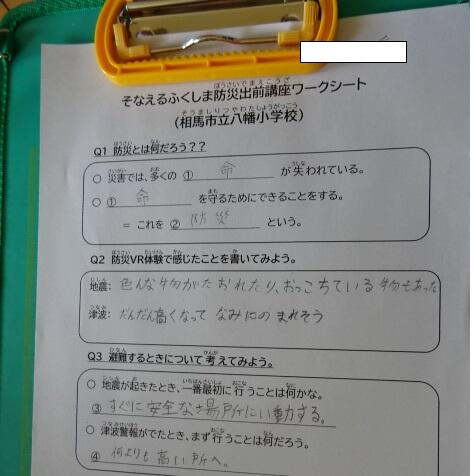 そなえるふくしま防災出前講座ワークシート
(相馬市立八幡小学校)
Q1 防災とは何だろう??
○ 災害では、多くの ① 命 が失われている。
○ ① 命 を守るためにできることをする。
= これを ② 防災 という。
Q2 防災VR体験で感じたことを書いてみよう。
地震: 色んな物がたおれたり、おっこちている物もあった
津波: だんだん高くなって なみにのまれそう
Q3 避難するときについて考えてみよう。
○ 地震が起きたとき、一番最初に行うことは何かな。
③ すぐに安全な場所にい動する。
○ 津波警報がでたとき、まず行うことは何だろう。
④ 何よりも高い所へ。